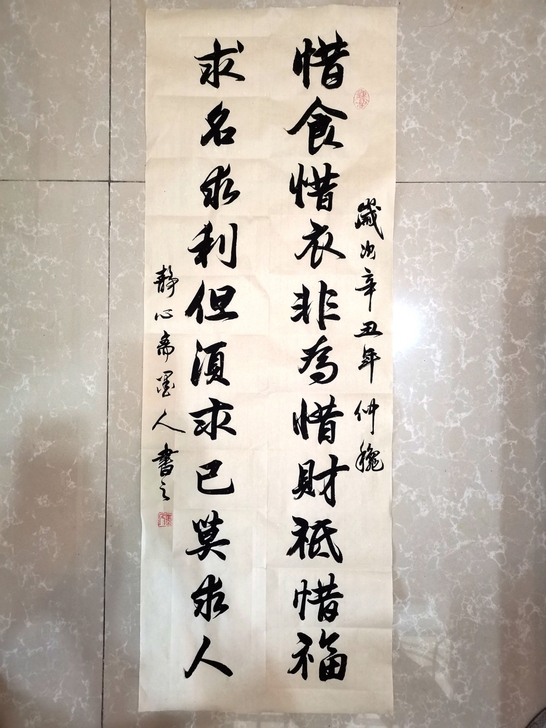 歲次辛丑年仲龝
惜食惜衣非為惜財祗惜福
求名求利但須求己莫求人
靜心齋墨人書之